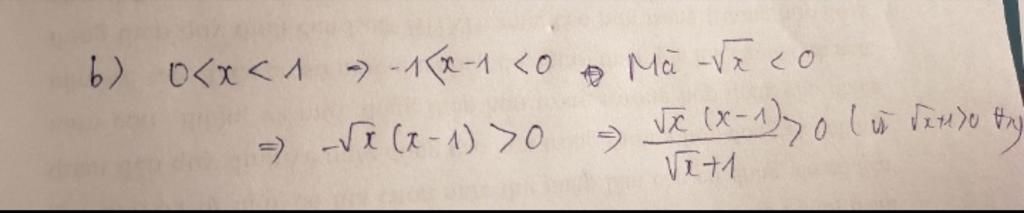 b) 0<x<1 ⇒ -1<x-1<0 Mà -√x < 0
⇒ -√x (x-1) > 0 ⇒ √x (x-1) / √x+1 > 0 ( vì √x+1>0 ∀x)